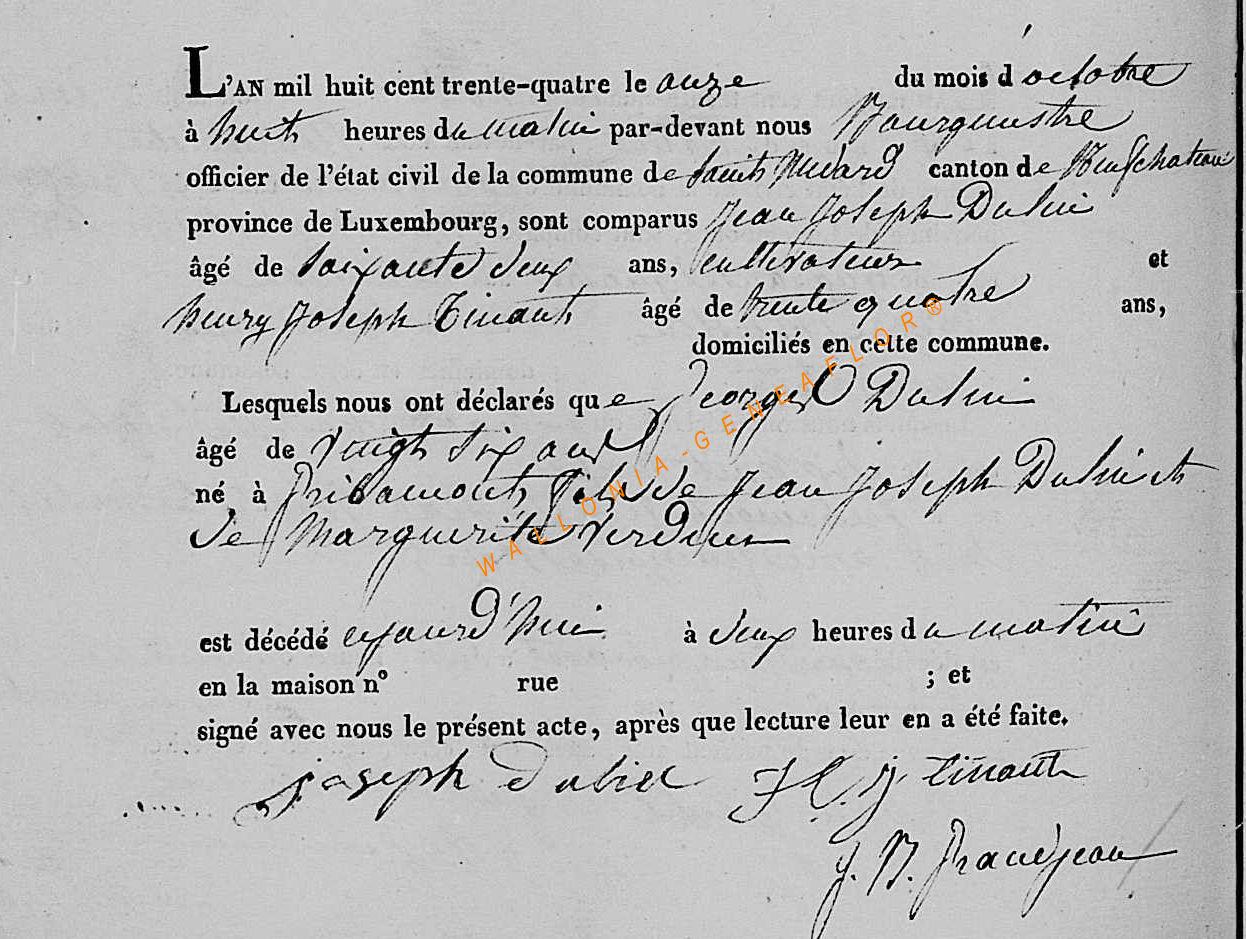 L'AN mil huit cent trente-quatre le onze du mois d'octobre
à huit heures du matin par-devant nous Bourguestre
officier de l'état civil de la commune de Saint Médard canton de Neufchateau
province de Luxembourg, sont comparus Jean Joseph
âgé de soixante deux ans, cultivateur et
henry Joseph Tinant âgé de trente quatre ans,
domiciliés en cette commune.
Lesquels nous ont déclarés que George
âgé de vingt six ans
né à fils de Jean Joseph et
de Marguerite
est décédé aujourd'hui à deux heures du matin
en la maison n° rue ; et
signé avec nous le présent acte, après que lecture leur en a été faite.
joseph H. j tinant
J. B. Grandjean
WALLONIA-GENEAFLOR®